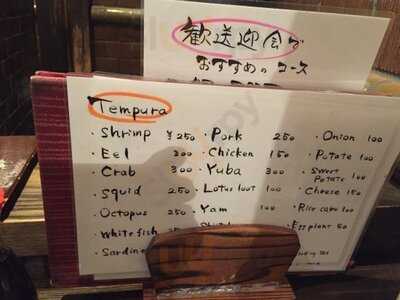 歓送迎会で
おすすめの コース
Tempura
・Shrimp ¥250 ・Pork 250 ・Onion 100
・Eel 300 ・Chicken 150 ・Potate 100
・Crab 300 ・Yuba 300 ・Sweet Potate 100
・Squid 250 ・Lotus loot 100 ・Cheese 150
・Octopus 250 ・Yam 100 ・Rice cake 100
・White fish ・Eggplant 50
・Sardine